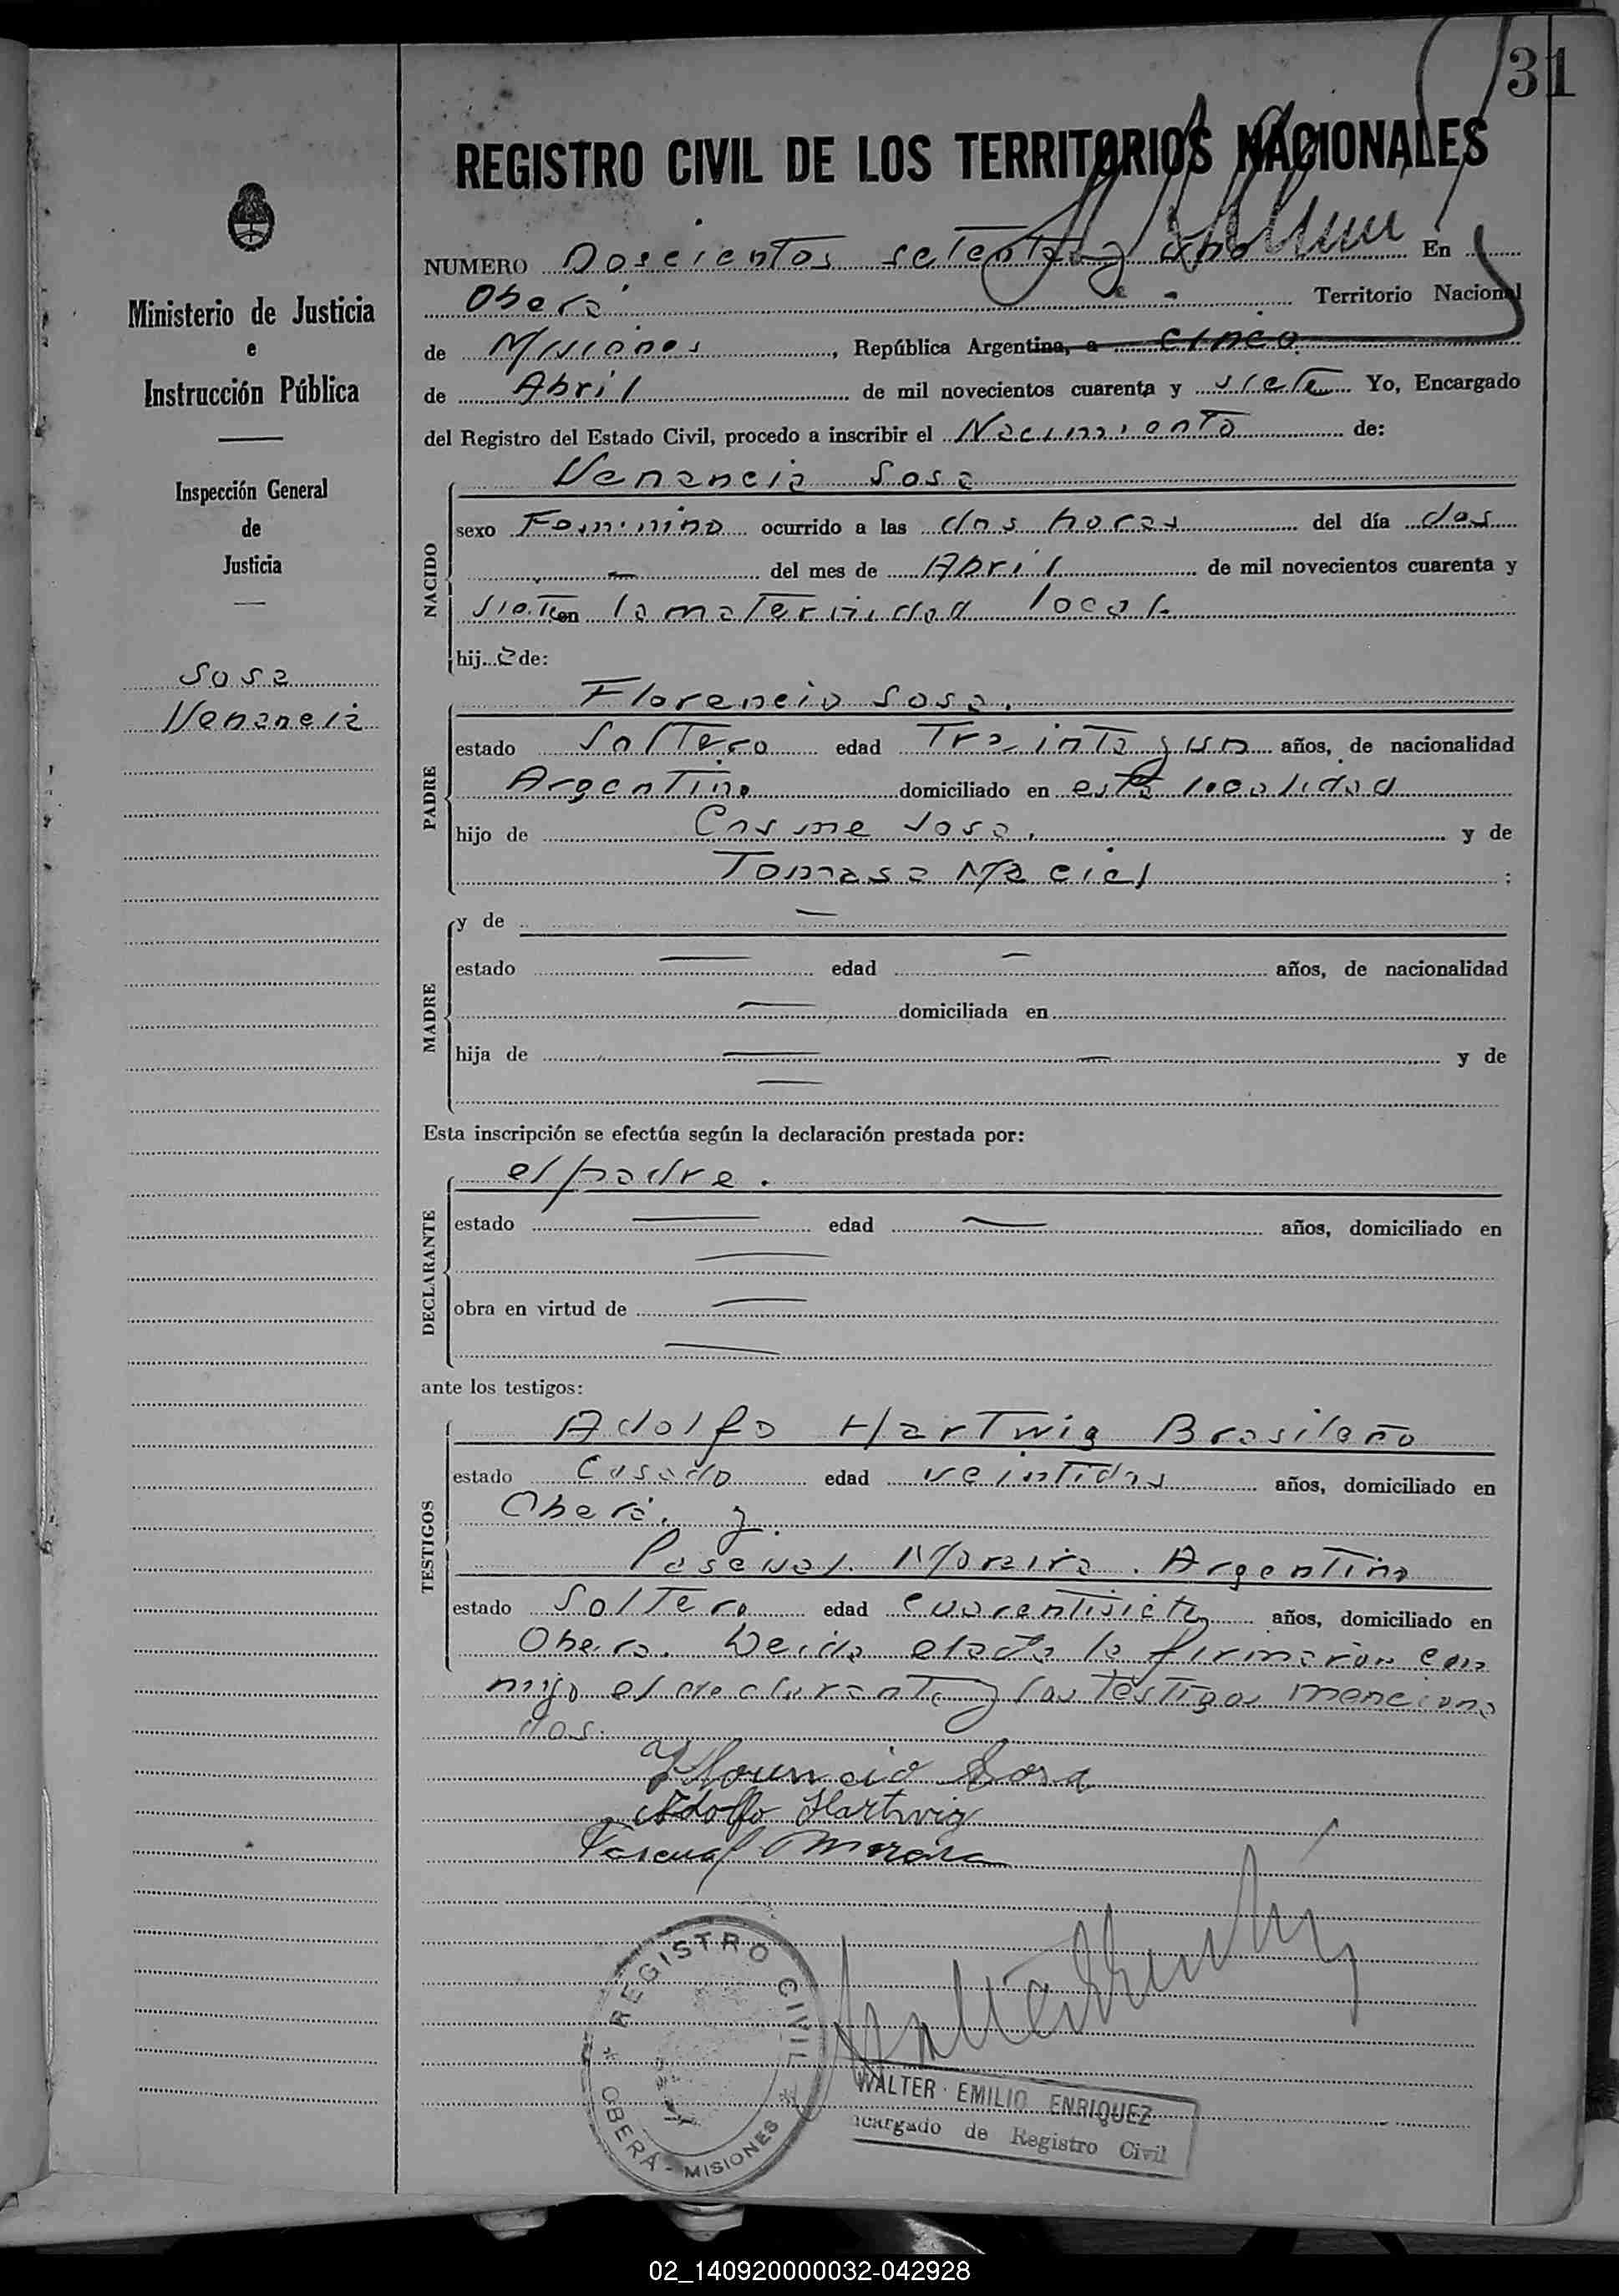 31
REGISTRO CIVIL DE LOS TERRITORIOS NACIONALES
NUMERO Doscientos setenta y uno En
Oberá Territorio Nacional
de Misiones, República Argentina, a cinco
de Abril de mil novecientos cuarenta y siete Yo, Encargado
del Registro del Estado Civil, procedo a inscribir el Nacimiento de:
Ministerio de Justicia
e
Instrucción Pública
Inspección General
de
Justicia
Sosa
Venancia
NACIDO
Venancia Sosa
sexo Feminino ocurrido a las dos horas del día dos
— del mes de Abril de mil novecientos cuarenta y
siete en la maternidad local
hija de:
PADRE
Florencio Sosa.
estado Soltero edad Treinta y un años, de nacionalidad
Argentino domiciliado en esta localidad
hijo de Cosme Sosa, y de
Tomasa Maciel ;
MADRE
y de —
estado — edad — años, de nacionalidad
— domiciliada en
hija de — — y de
—
Esta inscripción se efectúa según la declaración prestada por:
DECLARANTE
el padre.
estado — edad — años, domiciliado en
—
obra en virtud de —
—
ante los testigos:
TESTIGOS
Adolfo Hartwig Brasileño
estado Casado edad veintidos años, domiciliado en
Oberá. y.
Pascual Moreira. Argentino
estado Soltero edad cuarentisiete años, domiciliado en
Oberá. Leida el acta la firmaron con
migo el declarante y los testigos menciona
dos.
Florencio Sosa
Adolfo Hartwig
Pascual Moreira
REGISTRO CIVIL
OBERÁ - MISIONES
WALTER EMILIO ENRIQUEZ
ncargado de Registro Civil
02_140920000032-042928